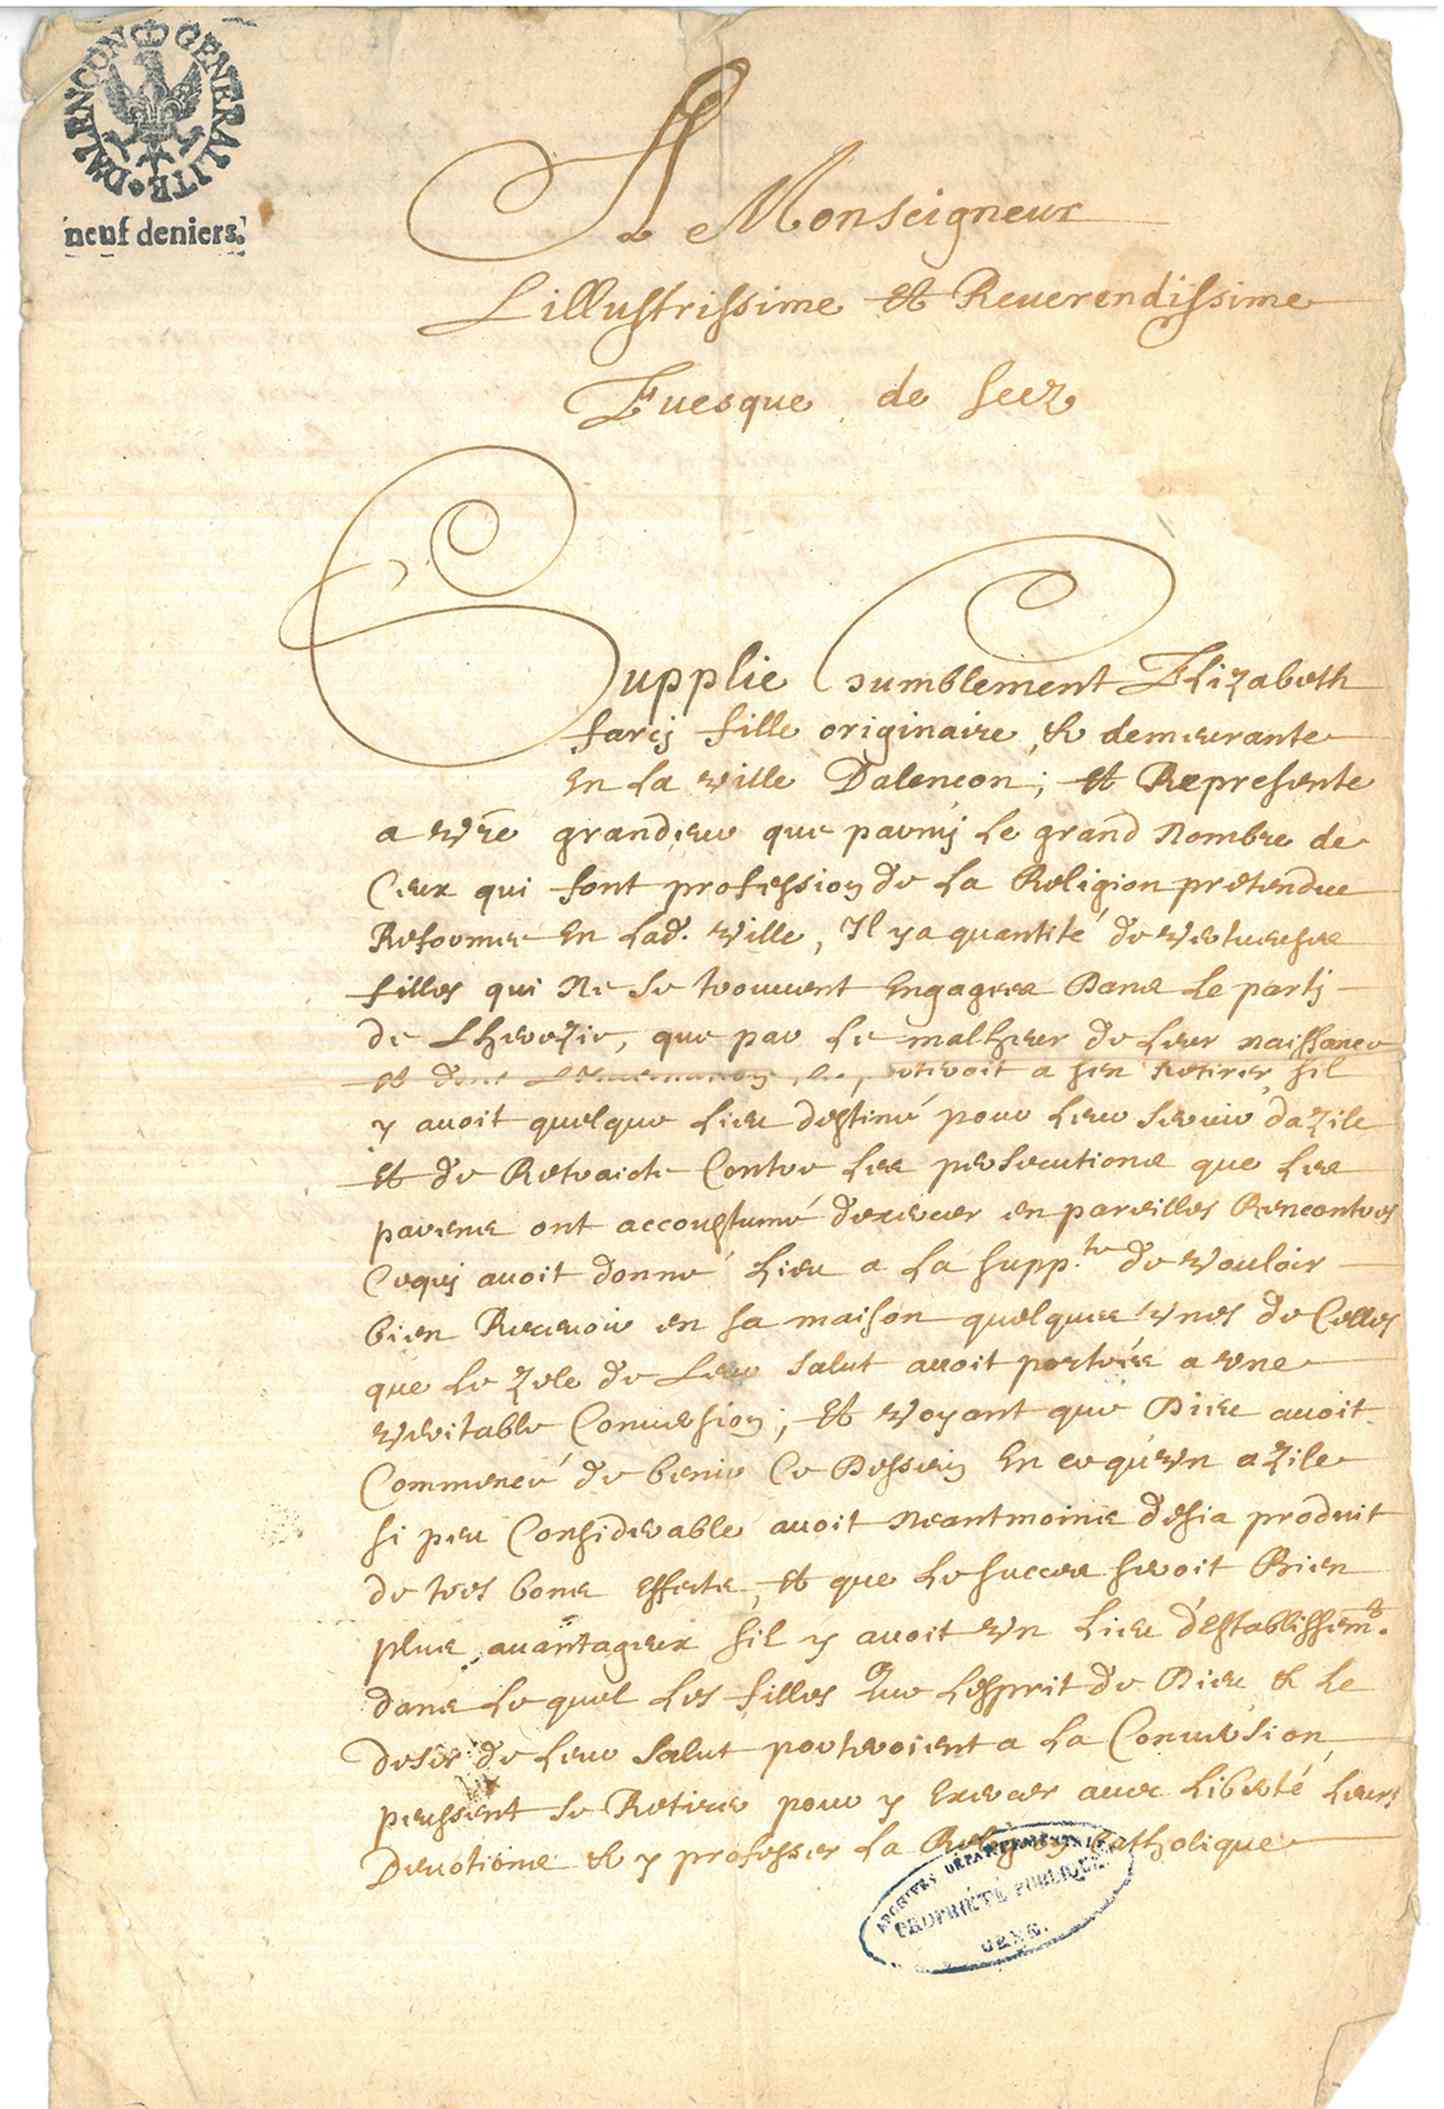 GENERALITE DALENCON
neuf deniers.
A Monseigneur
Lillustrissime et Reuerendissime
Euesque de seez
Supplie humblement Elizabeth
farcy fille originaire & demeurante
En La ville Dalencon; et Represente
a vre grandeur que parmy Le grand Nombre de
Ceux qui font profession de La Religion pretendue
Reformee En Lad. ville, Il y a quantité de vertueuses
filles qui Ne se trouuent Engagees Dans Le party
de Lherezie, que par Le malheur de Leur naissance
et dont a sen Retirer, sil
y auoit quelque Lieu destiné pour Leur seruir dazile
et de Retraicte Contre Les persecutions que Les
parens ont accoustumé dexercer en pareilles Rencontres
Cequy auoit donné Lieu a La supp.te de vouloir
bien Receuoir en sa maison quelques vnes de Celles
que Le zele de Leur salut auoit portées a vne
veritable Conuersion; et voyant que Dieu auoit
Commencé de benir Ce Dessein En ce qu'vn azile
si peu Considerable auoit Neantmoins desia produit
de tres bons Effects, et que Le succes seroit Bien
plus auantageux sil y auoit vn Lieu d'establissemt.
dans Le quel Les filles Que Lesprit de Dieu & Le
desir de Leur salut porteroient a La Conuersion,
peussent se Retirer pour y Exercer auec Liberté Leurs
Deuotions & y professer La Religion Catholique
ARCHIVES DEPARTEMENTALES
PROPRIÉTÉ PUBLIQUE
ORNE.